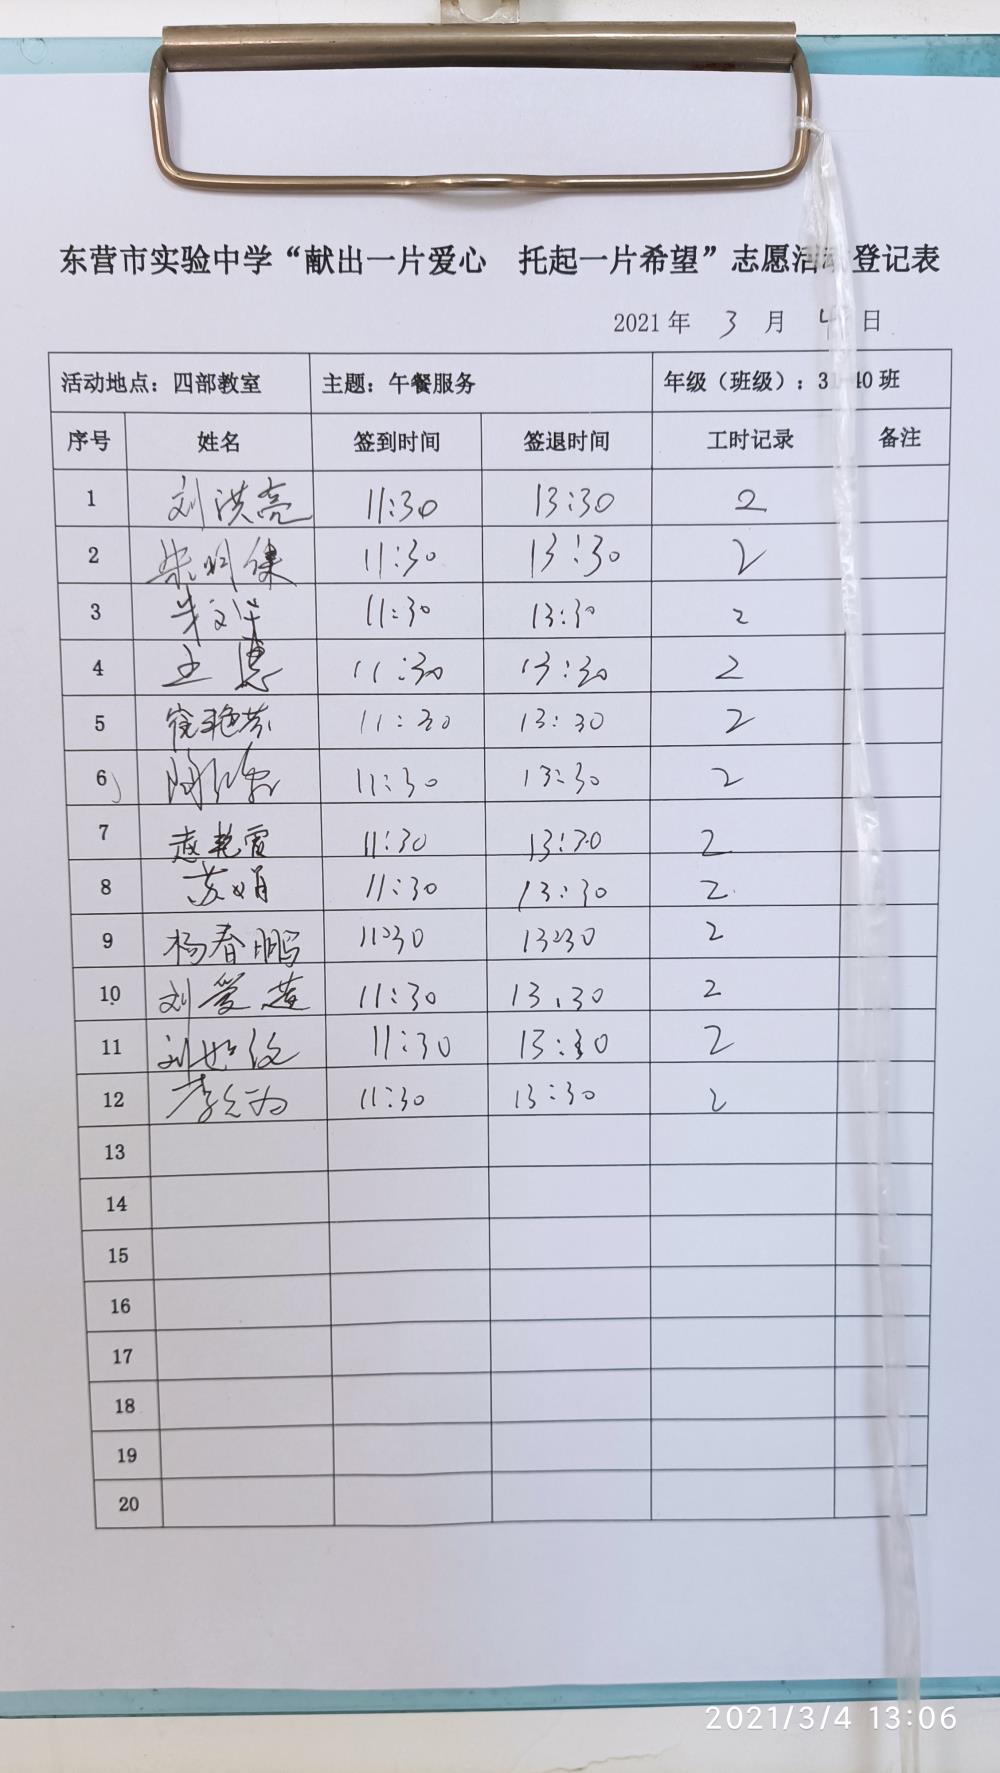 东营市实验中学“献出一片爱心 托起一片希望”志愿活动登记表
2021 年 3 月 4 日
活动地点：四部教室 主题：午餐服务 年级（班级）：31 40 班
序号 姓名 签到时间 签退时间 工时记录 备注
1 刘洪亮 11:30 13:30 2
2 11:30 13:30 2
3 11:30 13:30 2
4 王 11:30 13:30 2
5 11:30 13:30 2
6 11:30 13:30 2
7 赵艳霞 11:30 13:30 2
8 苏娟 11:30 13:30 2
9 杨春鹏 11:30 13:30 2
10 刘爱莲 11:30 13.30 2
11 刘 11:30 13:30 2
12 李 11:30 13:30 2
13
14
15
16
17
18
19
20
2021/3/4 13:06